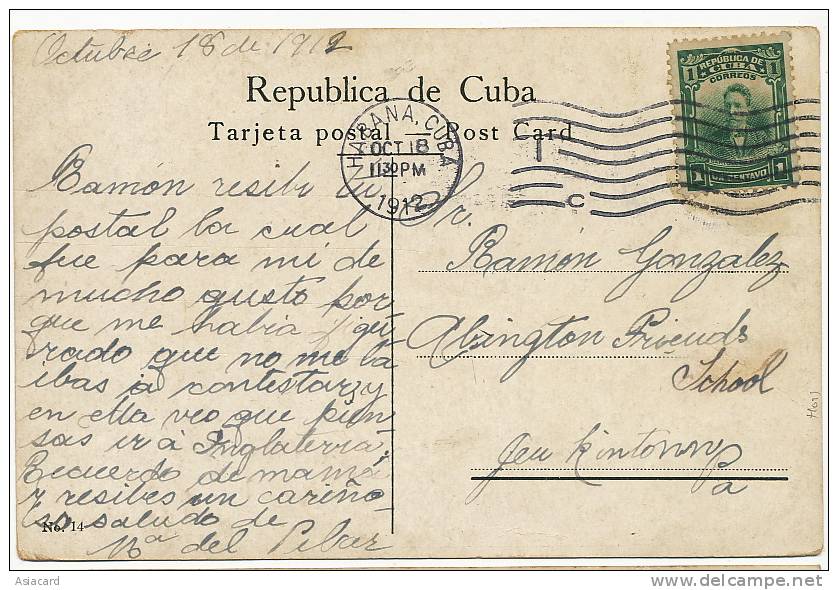 Octubre 18 de 1912
Republica de Cuba
Tarjeta postal — Post Card
HABANA, CUBA
OCT 18
1130 PM
1912
REPÚBLICA DE
CUBA
CORREOS
1 1
1 UN CENTAVO 1
T
C
Ramón resibi tu
postal la cual
fue para mi de
mucho gusto por
que me habia figu
rado que no me la
ibas a contestar y
en ella veo que pien
sas ir á Inglaterra,
Recuerdo de mamá
y resibes un cariño
so saludo de
Mª del Pilar
Sr.
Ramón Gonzalez
Abington Friends
School
Jen Kintown
Pa
No. 14
Asiacard
delcampe.net